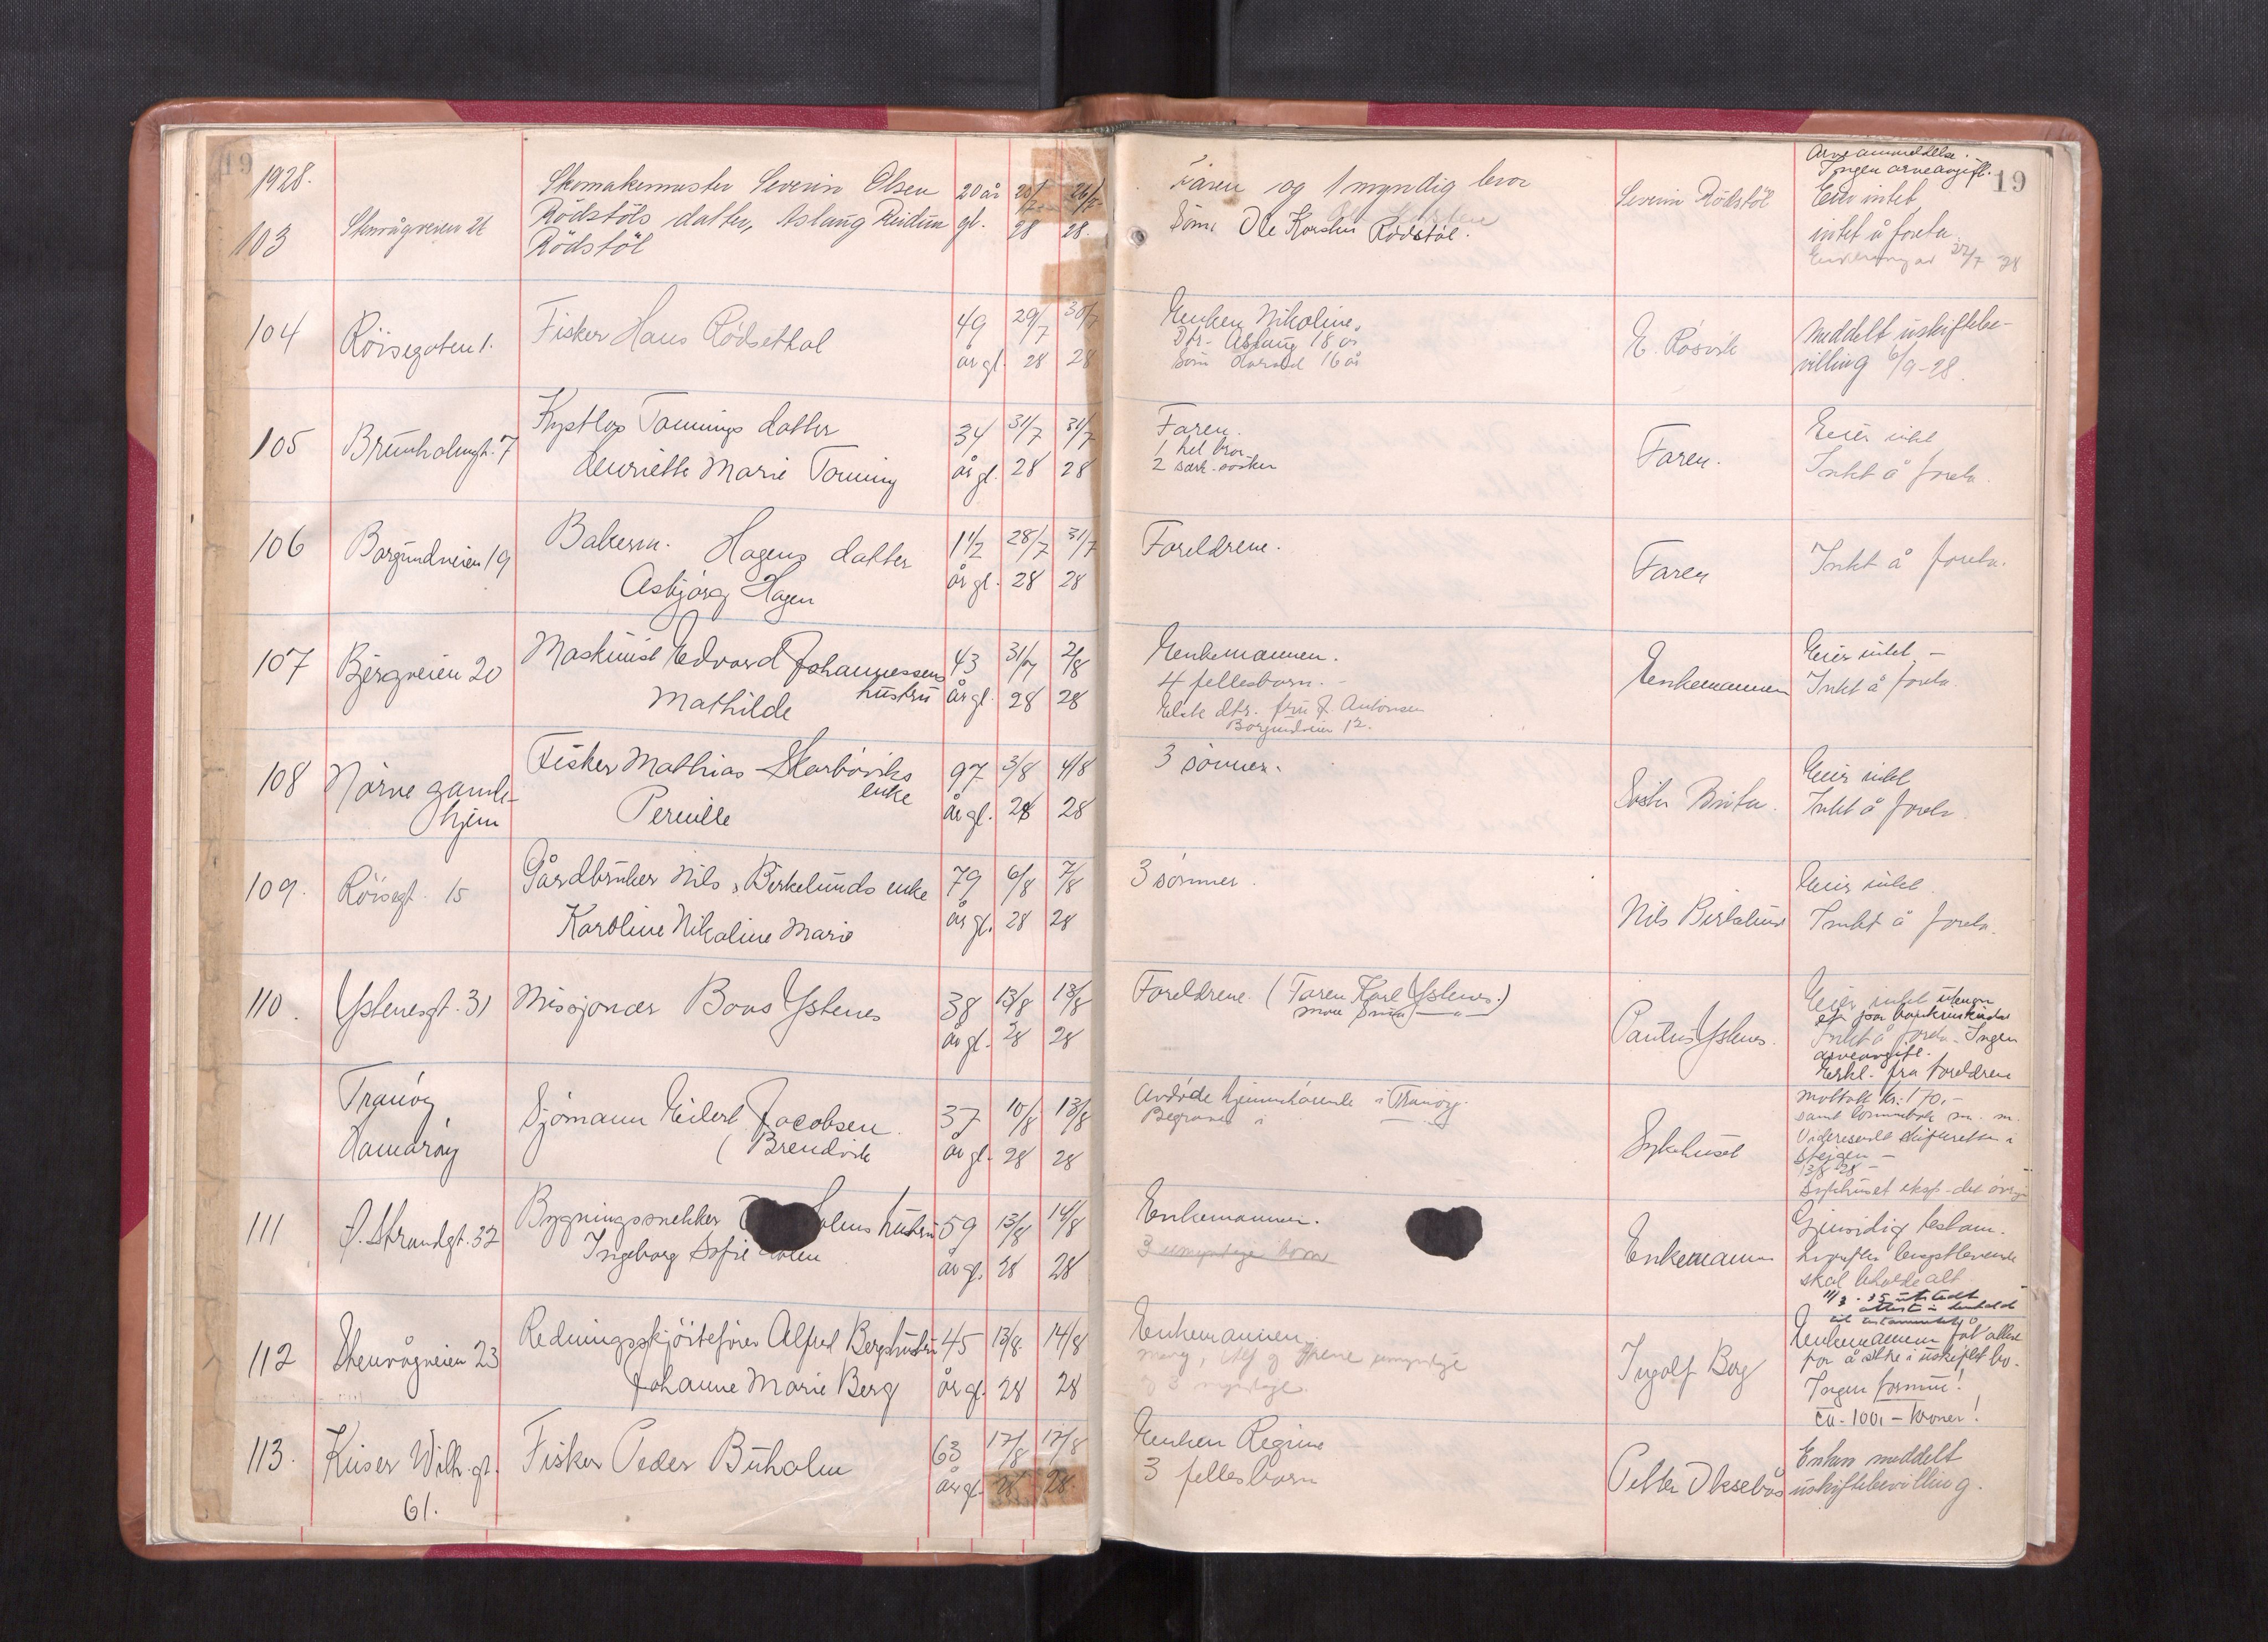 19
1928.
103
Skomakermester Severin Olsen
Rödstöls datter, Aslaug Reidun
Rödstöl
20 år
gl.
28
28.
Faren og 1 myndig bror
Sönn Ole Karsten Rödstöl.
Severin Rödstöl
Arveanmeldelse.
Ingen arveavgift.
19
Eier intet
intet å foreta
27/7 28
104
Röisegaten 1.
Fisker Hans Rödsethal
49
år gl.
29/7
28
30/7
28
Enken Nikoline.
Dtr. Aslaug 18 år
Sönn Harald 16 år
E. Rösvik
Meddelt uskiftebe-
villing 6/9-28.
105
Brunholmgt. 7
Tonnings datter
Henriette Marie Tonning
34
år gl.
31/7
28
31/7
28
Faren.
1 hel bror
2 særsösken
Faren.
Eier intet
Intet å foreta.
106
Borgundveien 19
Bakerm. Hagens datter
Asbjörg Hagen
1 1/2
år gl.
28/7
28
31/7
28
Foreldrene.
Faren
Intet å foreta.
107
Bjergveien 20
Maskinist Edvard Johannessens
hustru
Mathilde
43
år gl.
31/7
28
2/8
28
Enkemannen.
4 fellesbarn.
Eldste dtr. fru J. Antonsen
Borgundveien 12.
Enkemannen
Eier intet -
Intet å foreta.
108
Nörve gamle-
hjem
Fisker Mathias Skarböviks
enke
Pernille
97
år gl.
3/8
28
4/8
28
3 sönner.
Söster Brita.
Eier intet
Intet å foreta.
109.
Röisegt. 15
Gårdbruker Nils Birkelunds enke
Karoline Nikoline Marie
79
år gl.
6/8
28
7/8
28
3 sönner.
Nils Birkelund
Eier intet.
Intet å foreta.
110.
Ystenesgt. 31
Missjonær Ystenes
38
år gl.
13/8
28
13/8
28
Foreldrene. (Faren Karl Ystenes.)
Ystenes.
Eier intet utenom
et par bankinnskudd
Intet å foreta. Ingen
arveavgift.
Erkl. fra foreldrene
Tranöy
Hamaröy
Sjömann Eilert Jacobsen.
(Brendvik
37
år gl.
10/8
28
13/8
28
Avdöde hjemmehörende i Tranöy.
Begraves i
Sykehuset
Mottatt kr: 170,-
samt lommebok m. m.
Videresendt skifteretten i
Steigen -
13/8 28 -
Sykehuset eksp. det övrige
111
Ö. Strandgt. 32
Bygningssnekker Holens hustru
Ingeborg Sofie Holen
59
år gl.
13/8
28
14/8
28
Enkemannen.
3 umyndige barn
Enkemannen
Gjensidig testam.
hvorefter lengstlevende
skal beholde alt
112
Stenvågveien 23
Redningsskjöitefører Alfred Bergs hustru
Johanne Marie Berg
45
år gl.
13/8
28
14/8
28
Enkemannen.
Ingolf Berg
Enkemannen fåt attest
for å sitte i uskiftet bo.
Ingen formue!
ca. 100,- kroner!
113.
Keiser Wilh. gt.
61.
Fisker Peder Buholm
63
år gl.
17/8
28
17/8
28.
Enken Regine
3 fellesbarn
Petter Oksebås
Enken meddelt
uskiftebevilling.